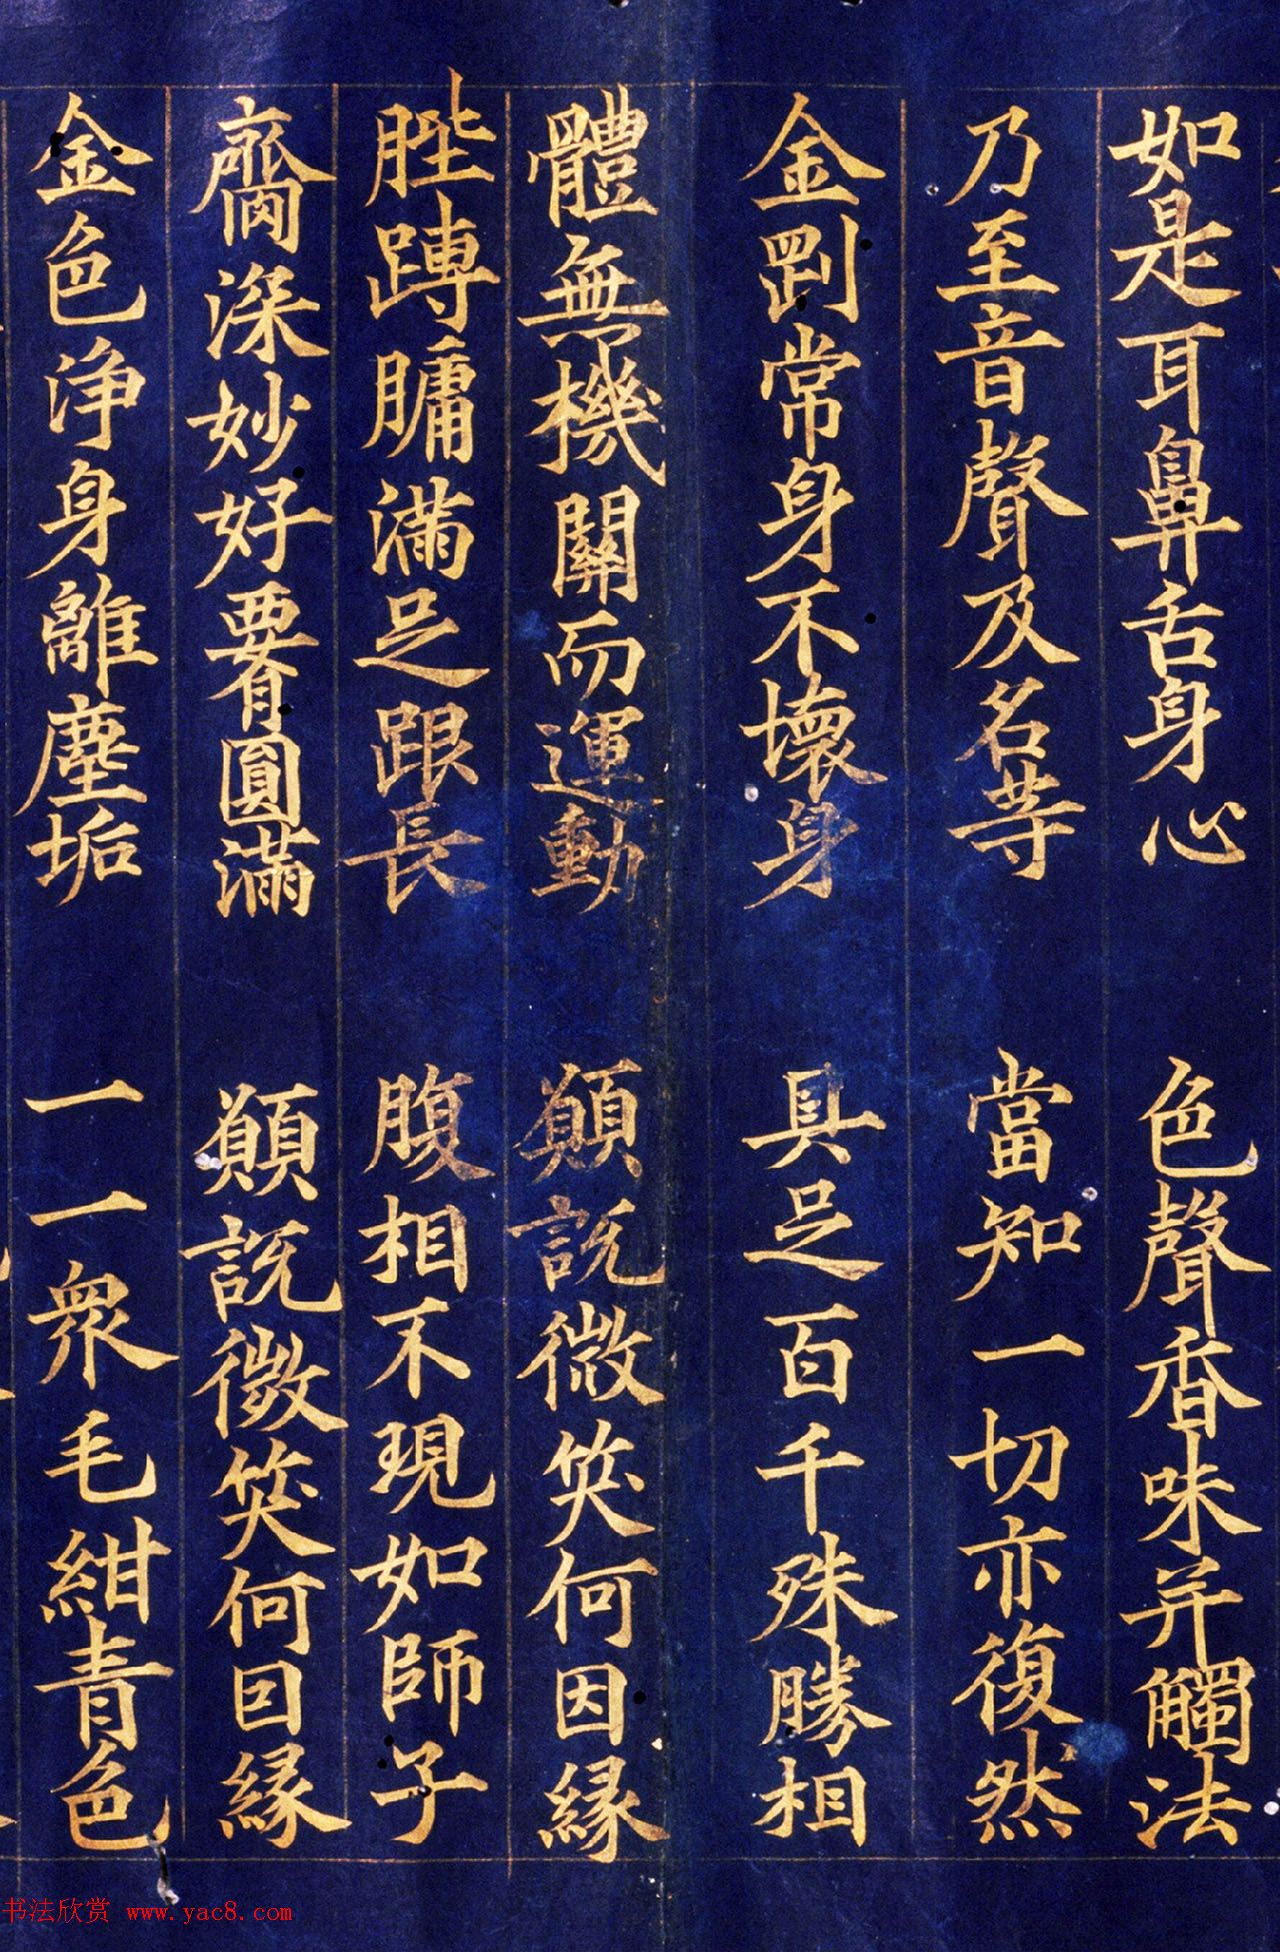 如是耳鼻舌身心 色聲香味并觸法
乃至音聲及名等 當知一切亦復然
金剛常身不壞身 具足百千殊勝相
體無機關而運動 願説微笑何因緣
䏶䏝𦟛滿足跟長 腹相不現如師子
齎深妙好要圓滿 願説微笑何因緣
金色淨身離塵垢 一一眾毛紺青色
书法欣赏 www.yac8.com